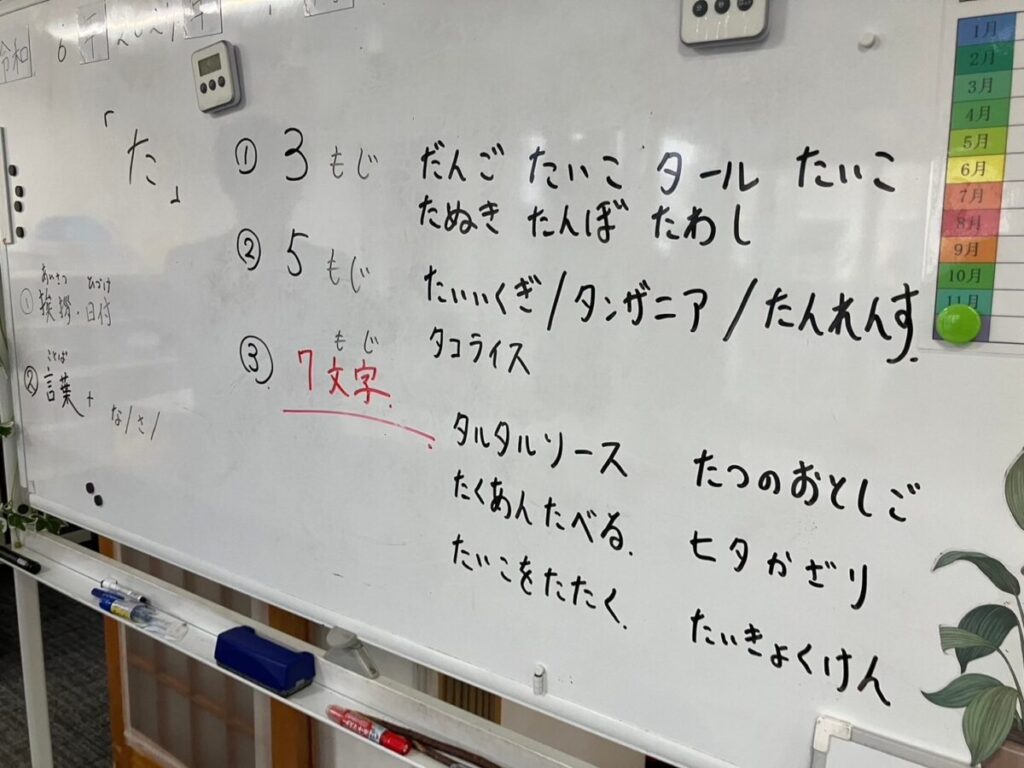 令和 6
「た」
① 3 もじ だんご たいこ タール たいこ
たぬき たんぼ たわし
② 5 もじ たいいくぎ/タンザニア/たんれんす.
タコライス
③ 7文字.
もじ
タルタルソース たつのおとしご
たくあんたべる. 七夕かざり
たいこをたたく. たいきょくけん
あいさつ ひづけ
① 挨拶・日付
ことば
② 言葉+
な/さ/
1月
2月
3月
4月
5月
6月
7月
8月
9月
10月
11月